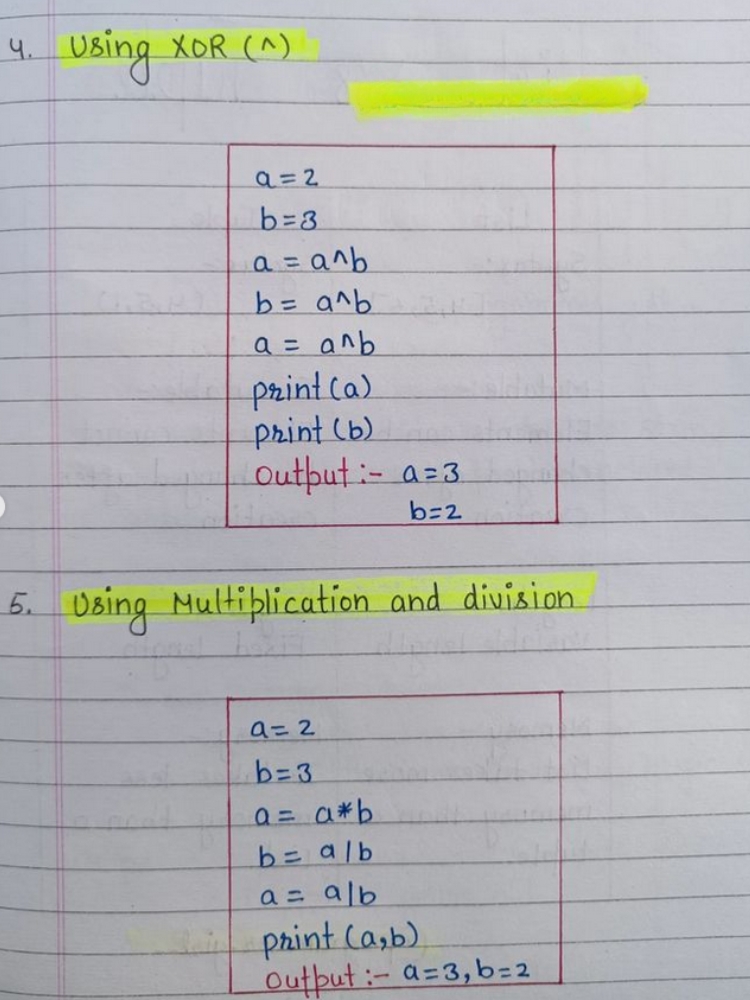 4. Using XOR (^)
a = 2
b = 3
a = a^b
b = a^b
a = a^b
print (a)
print (b)
Output :- a = 3
b = 2
5. Using Multiplication and division
a = 2
b = 3
a = a*b
b = a/b
a = a/b
print (a,b)
Output :- a = 3, b = 2